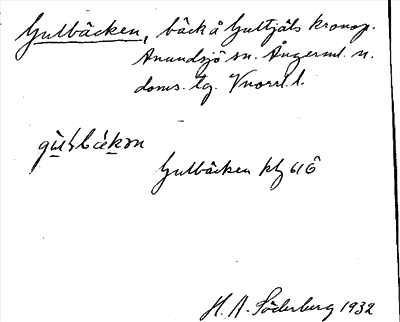 Gulbäcken, bäck å Gultjäls kronop.
Anundsjö sn. Ångerml. n.
doms. lg. Vnorrl. l.
Gulbäcken kbl 61 Ö
H. A. Söderberg 1932